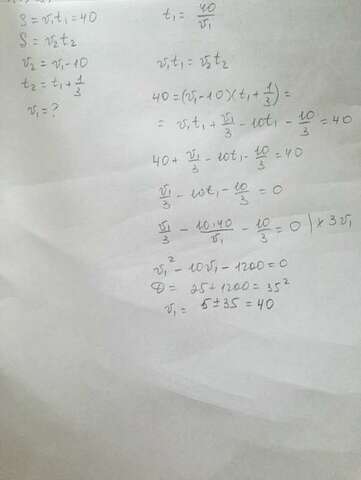 S = v₁t₁ = 40
S = v₂t₂
v₂ = v₁ - 10
t₂ = t₁ + 1/3
v₁ = ?
t₁ = 40/v₁
v₁t₁ = v₂t₂
40 = (v₁ - 10)(t₁ + 1/3) =
= v₁t₁ + v₁/3 - 10t₁ - 10/3 = 40
40 + v₁/3 - 10t₁ - 10/3 = 40
v₁/3 - 10t₁ - 10/3 = 0
v₁/3 - 10·40/v₁ - 10/3 = 0 | × 3v₁
v₁² - 10v₁ - 1200 = 0
D = 25 + 1200 = 35²
v₁ = 5 ± 35 = 40